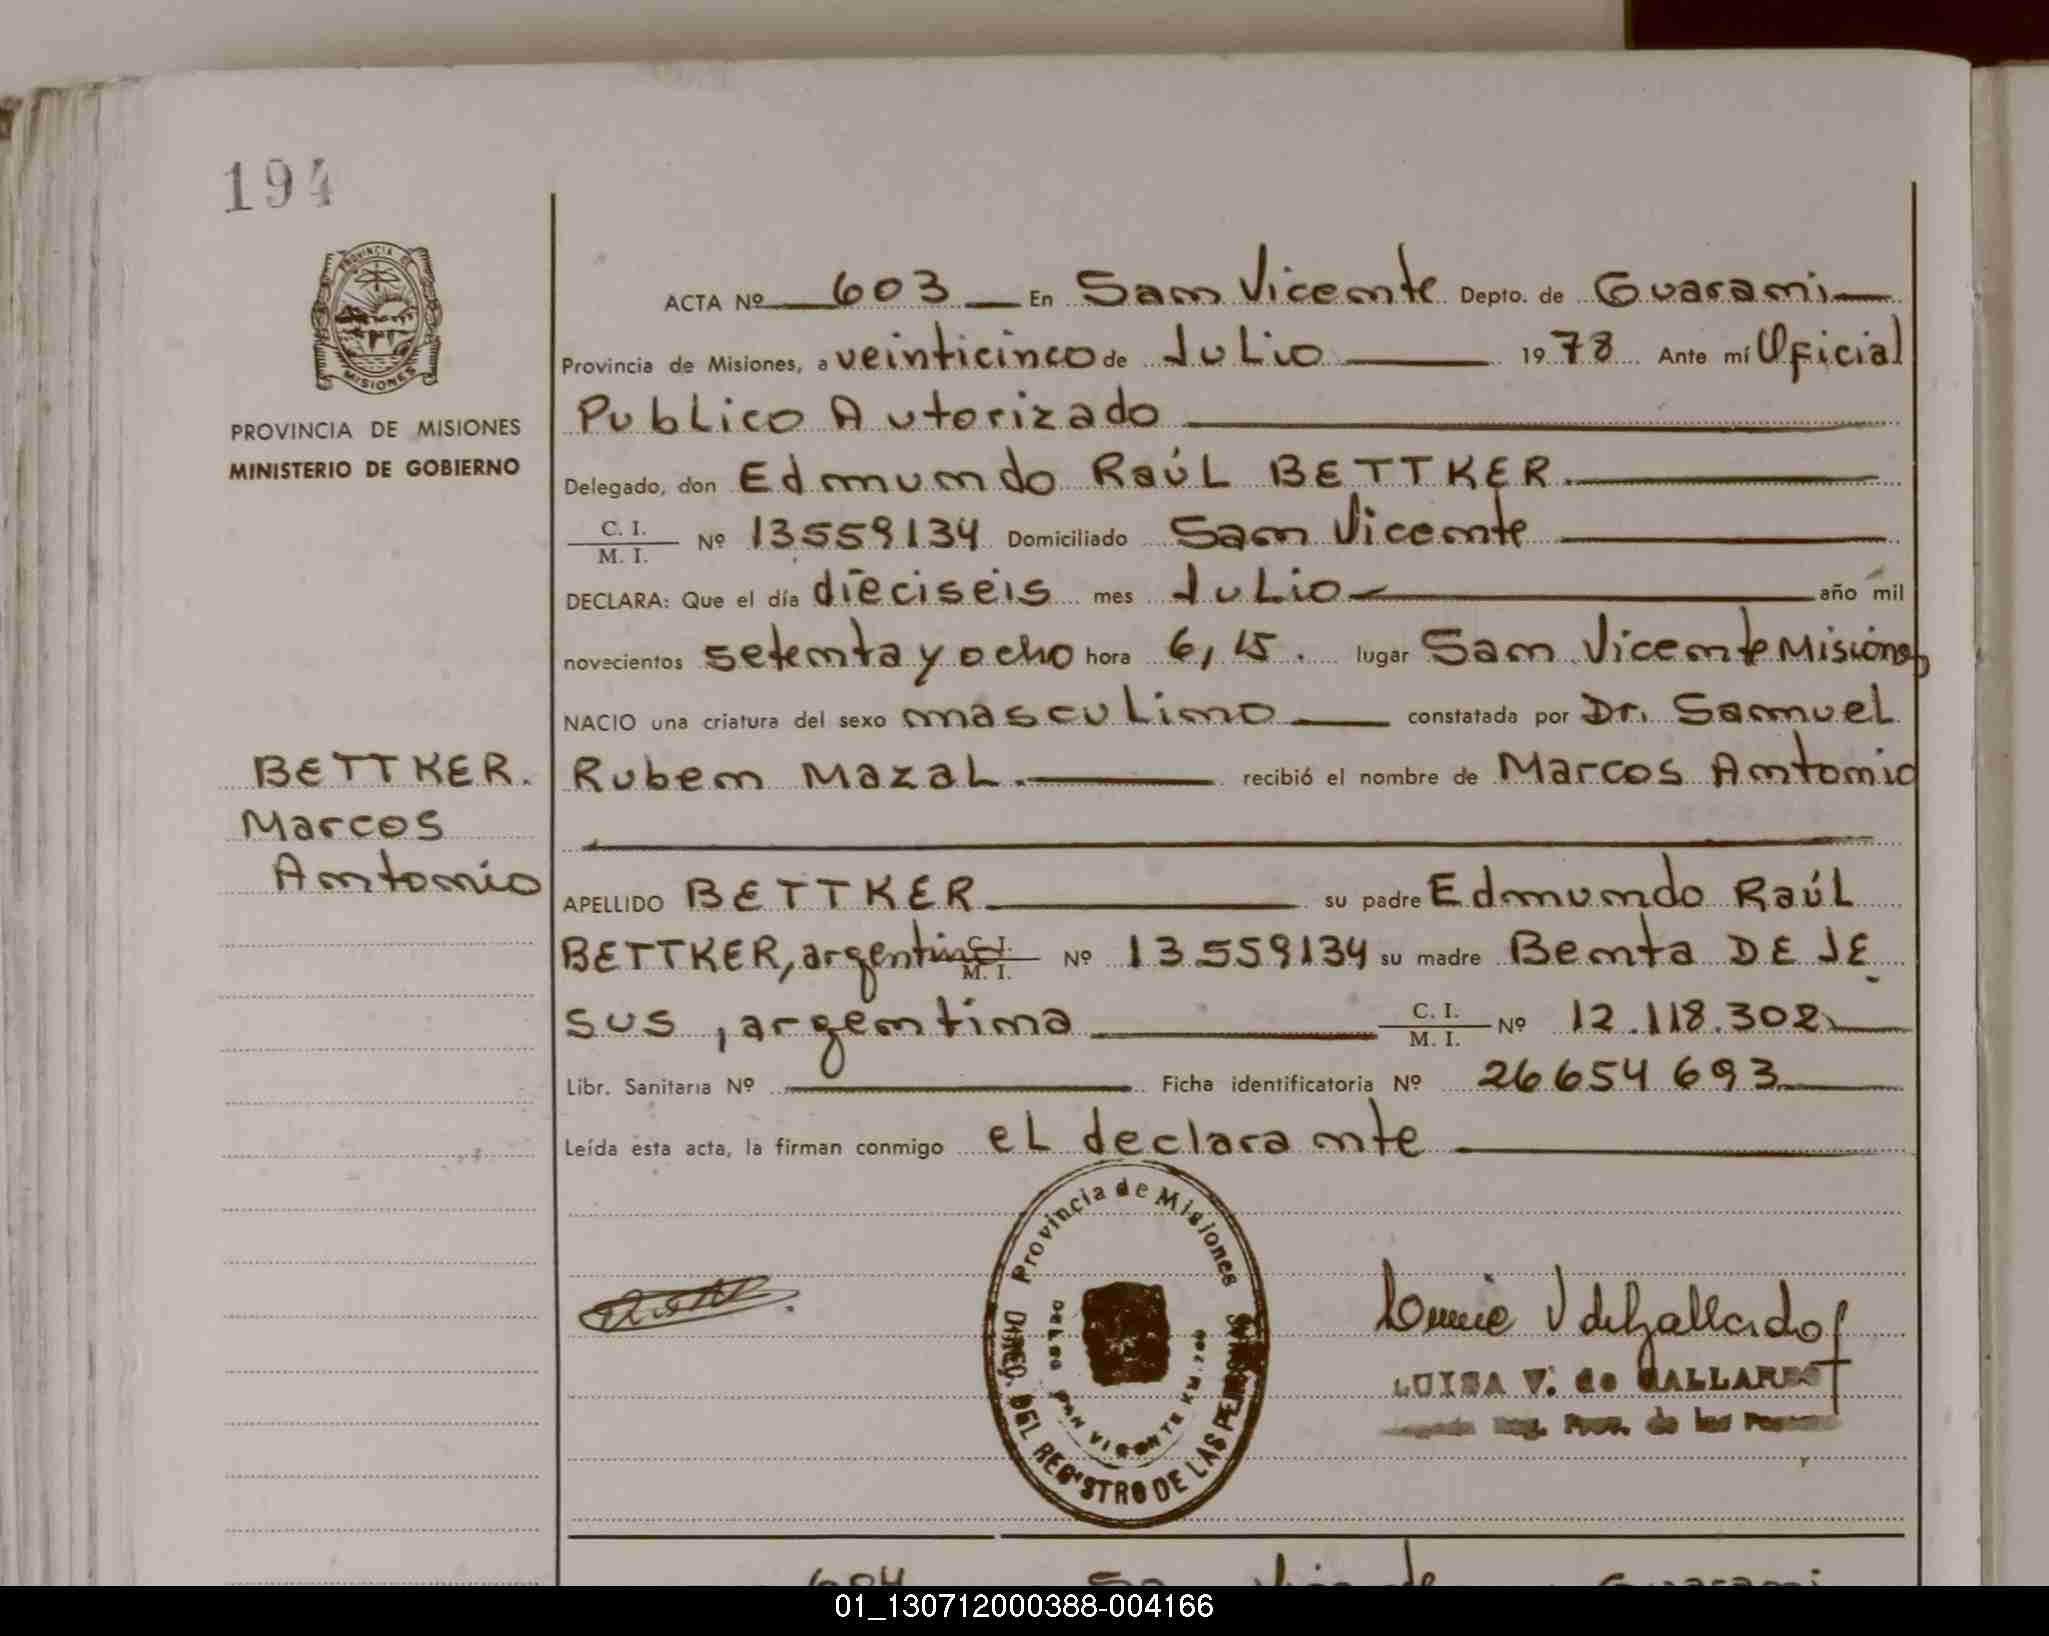 194
PROVINCIA DE MISIONES
PROVINCIA DE MISIONES
MINISTERIO DE GOBIERNO
ACTA Nº 603 En San Vicente Depto. de Guarani
Provincia de Misiones, a veinticinco de Julio 1978 Ante mí Oficial
Publico Autorizado
Delegado, don Edmundo Raúl BETTKER.
C. I.
M. I. Nº 13559134 Domiciliado San Vicente
DECLARA: Que el día dieciseis mes Julio año mil
novecientos setenta y ocho hora 6,15. lugar San Vicente Misiones
NACIO una criatura del sexo masculino constatada por Dr. Samuel
BETTKER.
Marcos
Antonio
Ruben Mazal. recibió el nombre de Marcos Antonio
APELLIDO BETTKER su padre Edmundo Raúl
BETTKER, argentino C. I.
M. I. Nº 13559134 su madre Benta DE JE
SUS, argentina C. I.
M. I. Nº 12.118.302
Libr. Sanitaria Nº Ficha identificatoria Nº 26654693
Leída esta acta, la firman conmigo el declarante
Provincia de Misiones
DIREC. DEL REGISTRO DE LAS PERSONAS
SAN VICENTE KM.
V de Gallardo
LUISA V. de GALLARDO
Reg. Prov. de las
604 San Vicente Guarani
01_130712000388-004166